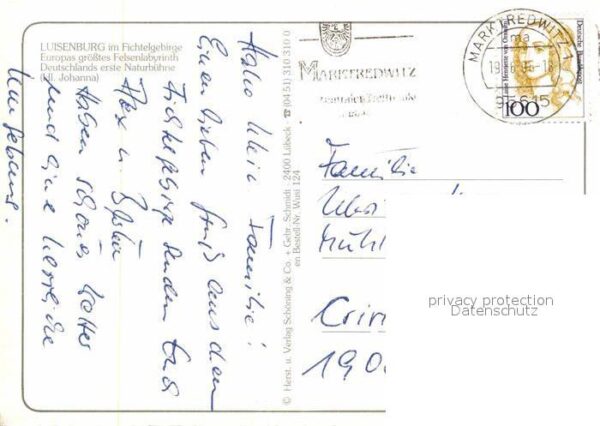 LUISENBURG im Fichtelgebirge
Europas größtes Felsenlabyrinth
Deutschlands erste Naturbühne
(Hl. Johanna)
Hallo kleine Familie!
Einen lieben Gruß aus dem
Fichtelgebirge senden Euch
Haben schönes Wetter
und eine herrliche
Umgebung.
© Herst. u. Verlag Schöning & Co. + Gebr. Schmidt · 2400 Lübeck · ☎ (04 51) 310 310 0
en Bestell-Nr. Wusi 124
MARKTREDWITZ
MARKTREDWITZ 1
ma
95615
Deutsche Bundespost
100
Familie
Mühl
Crim
190
privacy protection
Datenschutz